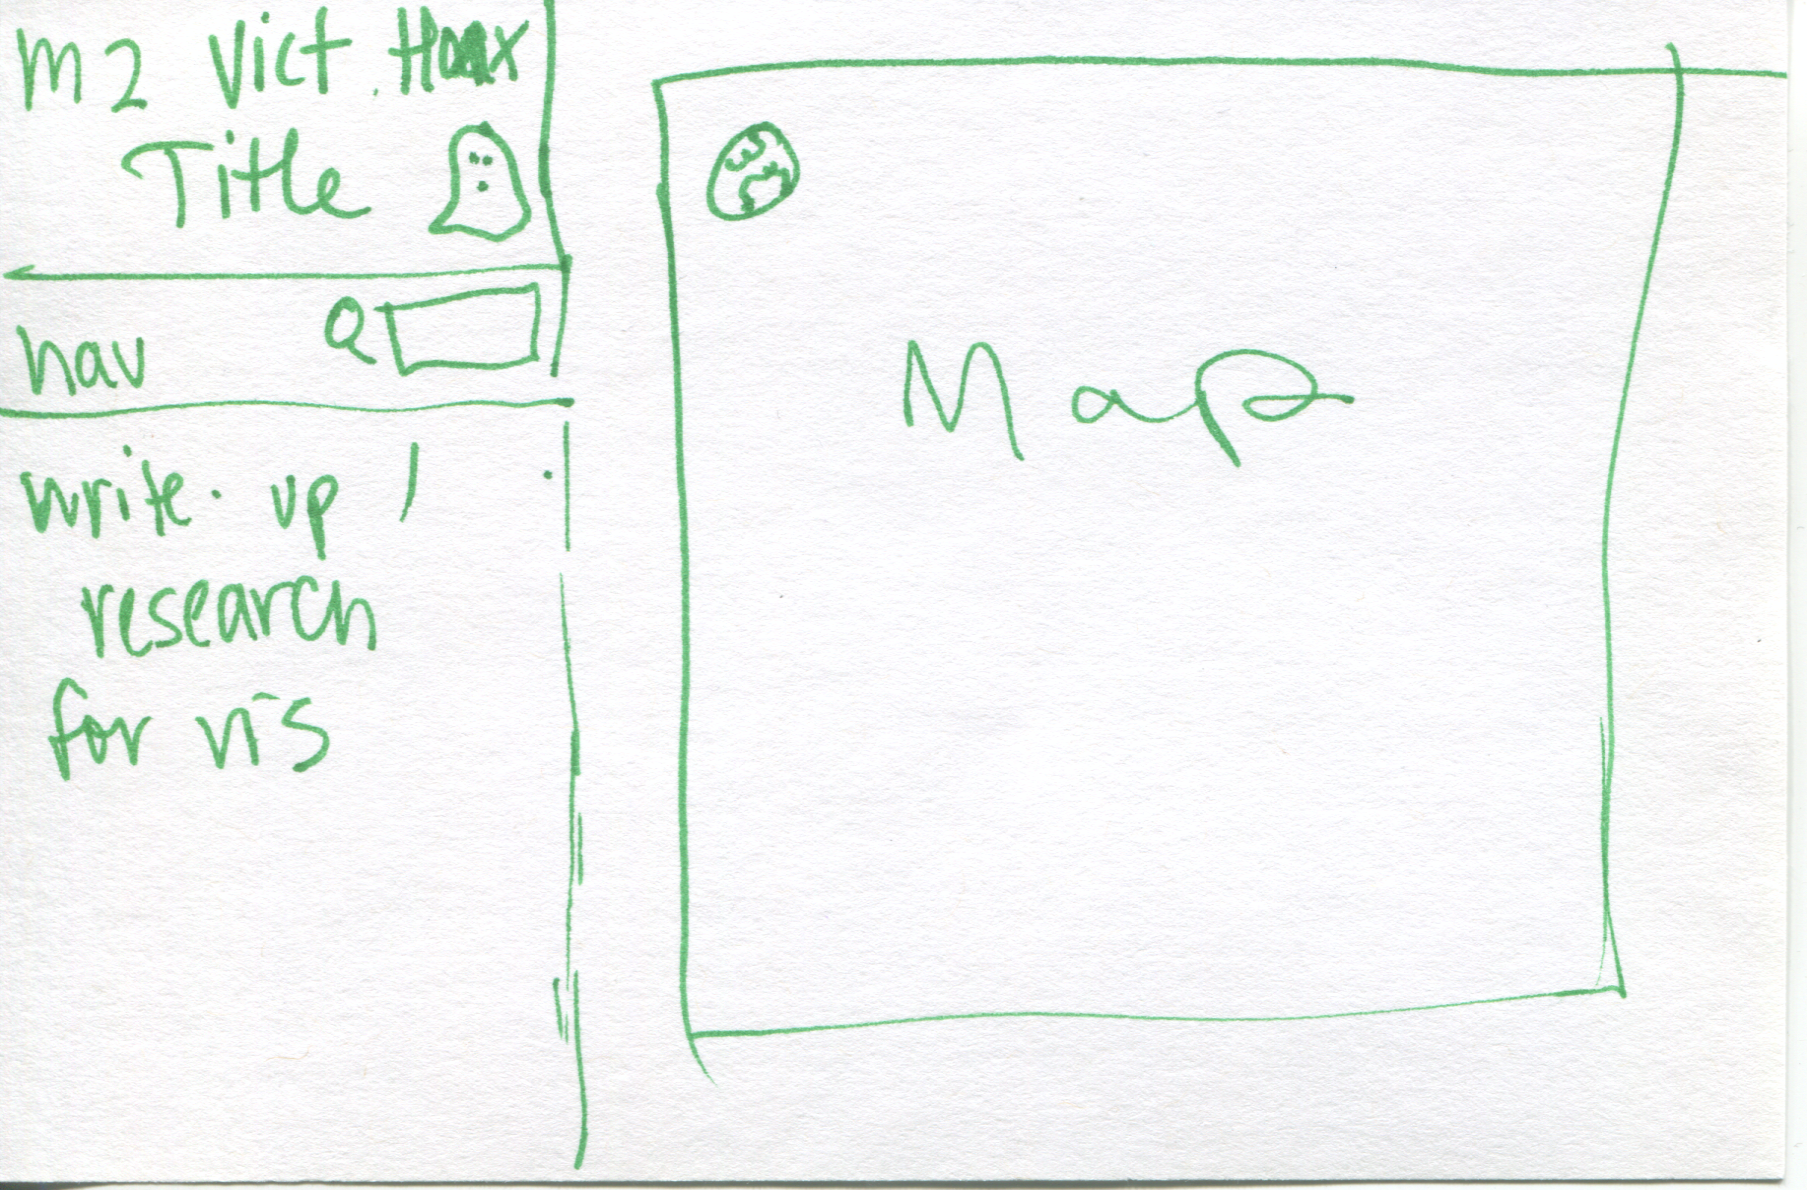 m2 Vict. Hoax
Title
nav
write. up /
research
for vis
Map